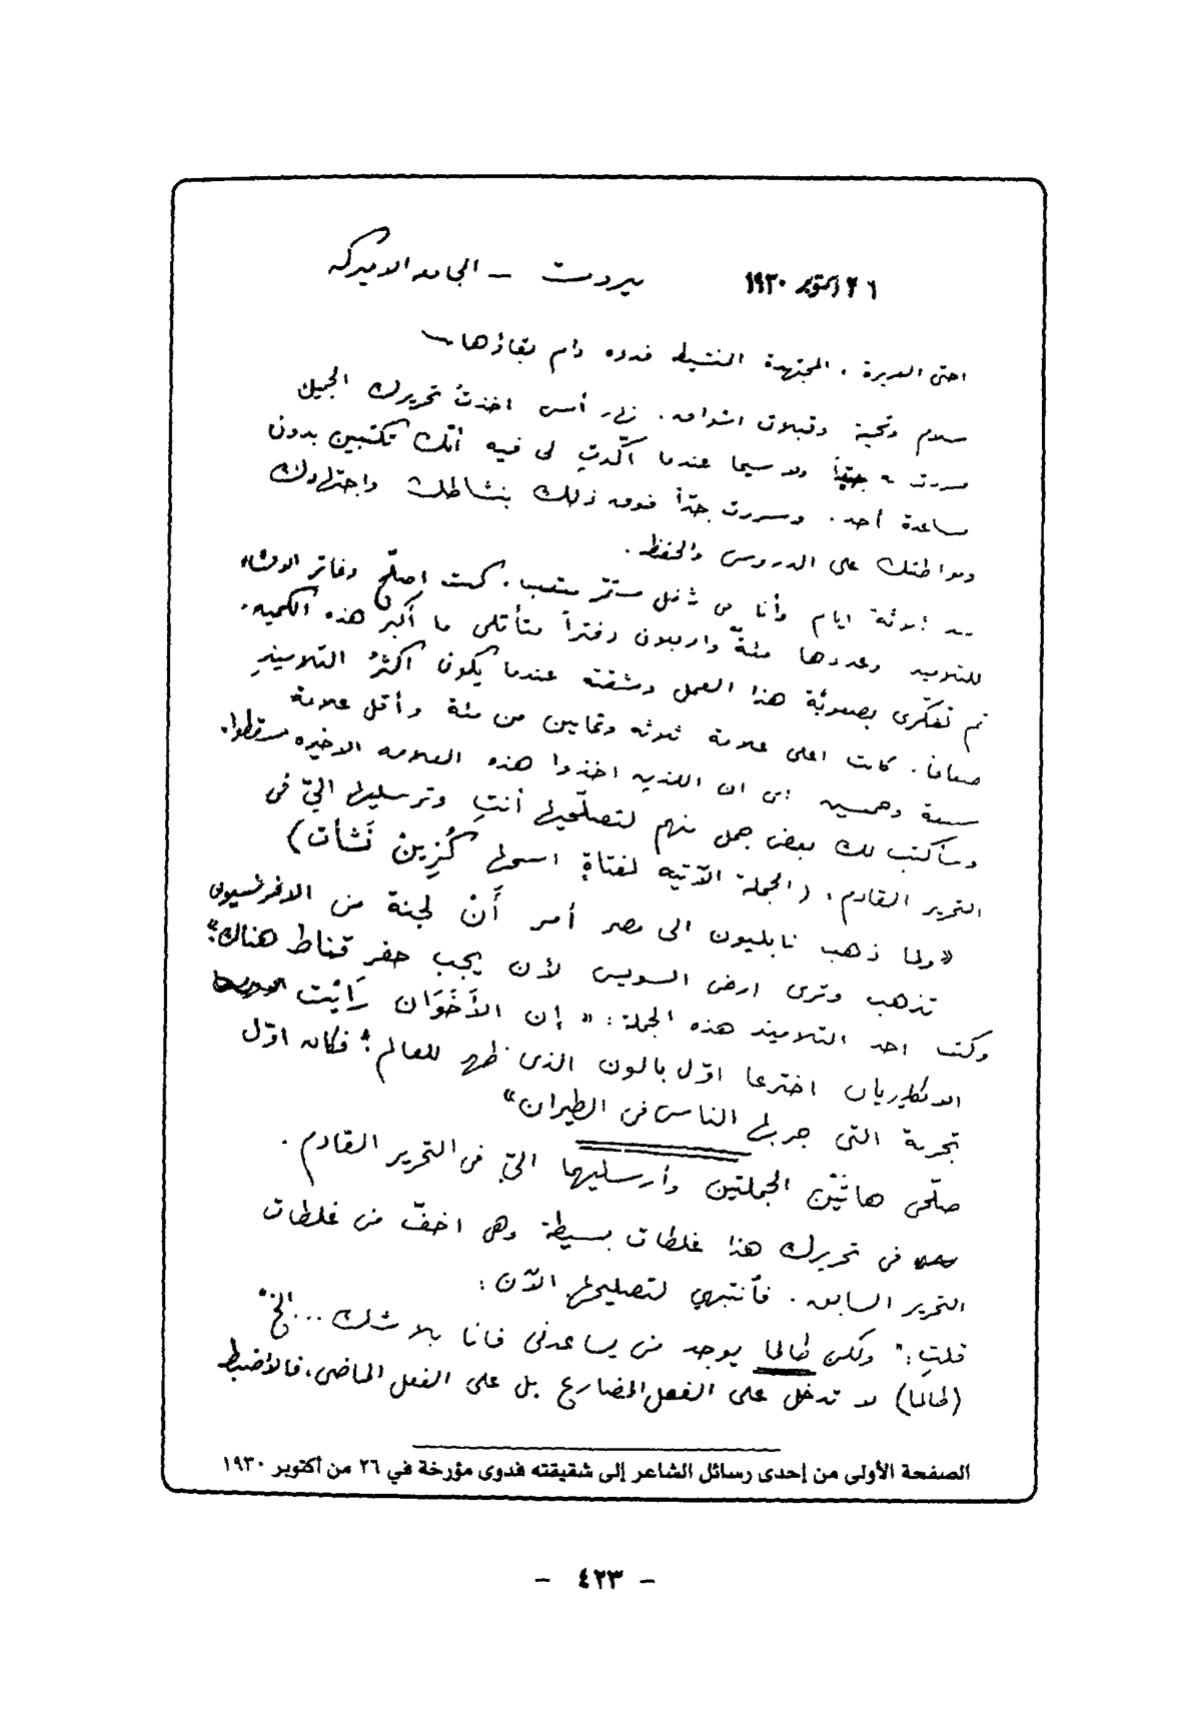 ٢٦ اكتوبر ١٩٣٠ بيروت – الجامعه الاميركيه
اختي العزيزة . المجتهدة النشيطه فدوى دام بقاؤها
سلام وتحية وقبلات اشواق . نهار أمس اخذتُ تحريرك الجميل
سررت به جدّاً ولا سيما عندما اكّدتِ لي فيه أنّك تكتبين بدون
مساعدة أحد . وسررت جدّاً فوق ذلك بنشاطك واجتهادك
ومواظبتك على الدروس والحفظ .
ثلاثة ايام وأنا في شغل مستمر متعب . كنت اصلّح دفاتر الانشاء
للتلاميذ وعددها مئةٌ واربعون دفتراً فتأمّلي ما أكبر هذه الكميه .
ثم تفكّري بصعوبة هذا العمل ومشقته عندما يكون اكثرُ التلاميذِ
ضعافاً . كانت اعلى علامة ثلاثه وثمانين من مئة وأقل علامة
سبعة وخمسين اي ان الذين اخذوا هذه العلامه الاخيره سقطوا .
وسأكتب لك بعض جمل منهم لتصلّحيها أنتِ وترسليها اليّ في
التحرير القادم . (الجملة الآتيه لفتاةٍ اسمها كُزِينْ نَشأت)
«ولما ذهب نابليون الى مصر أمر أَنْ لجنة من الافرنسيون
تذهب وترى ارض السويس لأن يجب حفر قناط هناك»
وكتب احد التلاميذ هذه الجملة : « إن الأَخَوَان رَايْت
الامكليزيان اخترعا اوّل بالون الذي ظهر للعالم ؛ فكان اوّل
تجربة التي جربها الناس في الطيران»
صلّحي هاتَيْن الجملتين وأرسليهما اليّ في التحرير القادم .
في تحريرك هذا غلطات بسيطة وهي اخفّ من غلطات
التحرير السابق . فأنتبهي لتصليحها الآن :
قلتِ : " ولكن طالما يوجد من يساعدني فانا بلا شك ... الخ "
(طالما) لا تدخل على الفعل المضارع بل على الفعل الماضي ، فالأضبط
الصفحة الأولى من إحدى رسائل الشاعر إلى شقيقته فدوى مؤرخة في ٢٦ من أكتوبر ١٩٣٠
– ٤٢٣ –